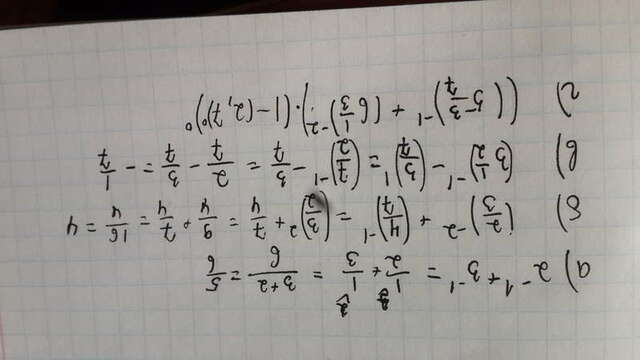 а) 2⁻¹ + 3⁻¹ = 1/2 + 1/3 = (3+2)/6 = 5/6
б) (2/3)⁻² + (4/7)⁻¹ = (3/2)² + 7/4 = 9/4 + 7/4 = 16/4 = 4
в) (3 1/2)⁻¹ − (3/7)¹ = (7/2)⁻¹ − 3/7 = 2/7 − 3/7 = − 1/7
г) ((5 3/7)⁻¹ + (6 1/3)⁻²)·(1−(2,7)⁰)⁰